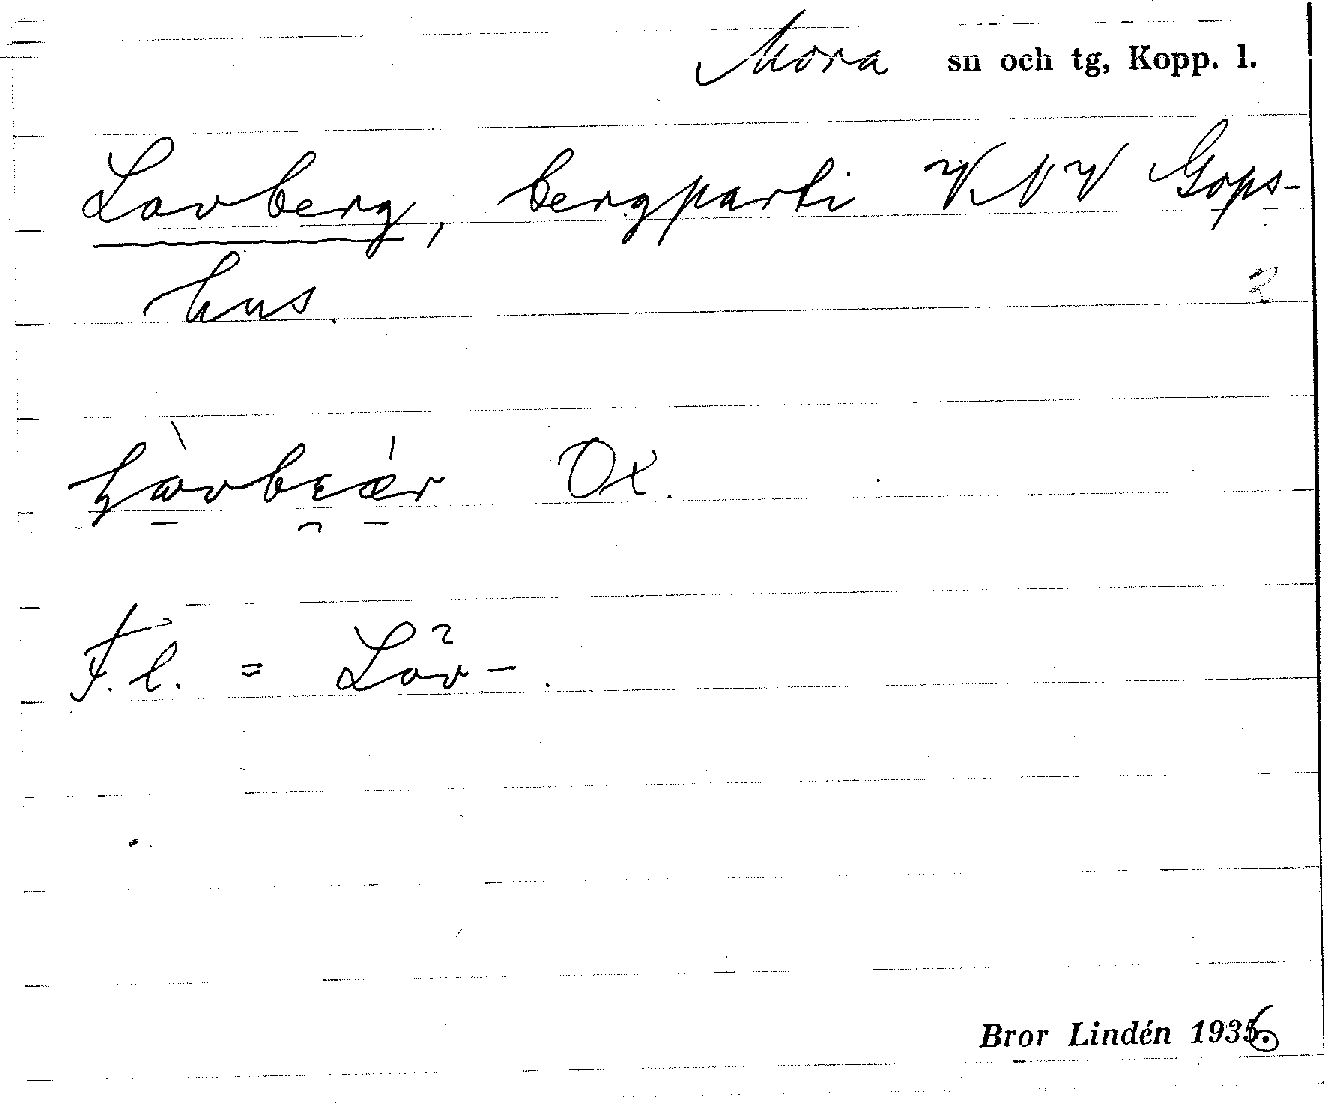 Mora sn och tg, Kopp. l.
Lovberg, bergparti VNV Gops-
hus.
2
Ox.
F. l. = Lov-.
Bror Lindén 1936